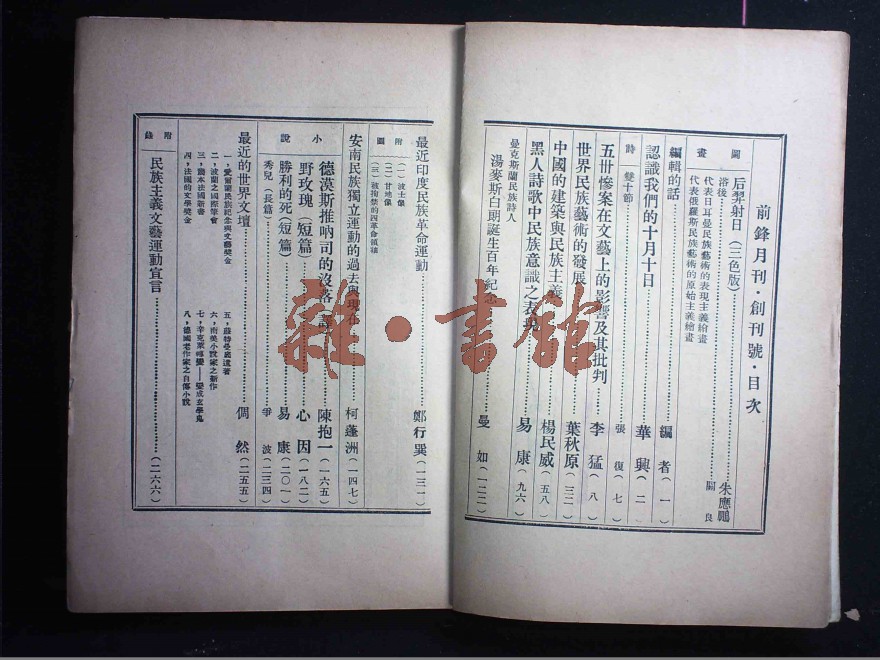 前鋒月刊·創刊號·目次
圖畫
后羿射日（三色版）……朱應鵬
浴後……關良
代表日耳曼民族藝術的表現主義繪畫
代表俄羅斯民族藝術的原始主義繪畫
編輯的話……編者（一）
認識我們的十月十日……華興（二）
詩 雙十節……張復（七）
五卅慘案在文藝上的影響及其批判……李猛（八）
世界民族藝術的發展……葉秋原（三二）
中國的建築與民族主義……楊民威（五八）
黑人詩歌中民族意識之表現……易康（九六）
曼克斯蘭民族詩人
湯麥斯白朗誕生百年紀念……曼如（一二二）
最近印度民族革命運動……鄭行巽（一三一）
附圖
（一）波士像
（二）甘地像
（三）被拘禁的四革命領袖
安南民族獨立運動的過去與現在……柯蓬洲（一四七）
小說
德漠斯推吶司的沒落（譯）……陳抱一（一六五）
野玫瑰（短篇）……心因（一八二）
勝利的死（短篇）……易康（二〇一）
秀兒（長篇）……爭波（二三四）
最近的世界文壇……倜然（二五五）
一，愛爾蘭民族紀念與文藝獎金
二，波蘭之國際筆會
三，
四，法國的文學獎金
五，蘇特曼底遺著
六，南美小說家之新作
七，辛克萊轉變——變成玄學鬼
八，德國老作家之自傳小說
附錄
民族主義文藝運動宣言……（二六六）
雜·書館